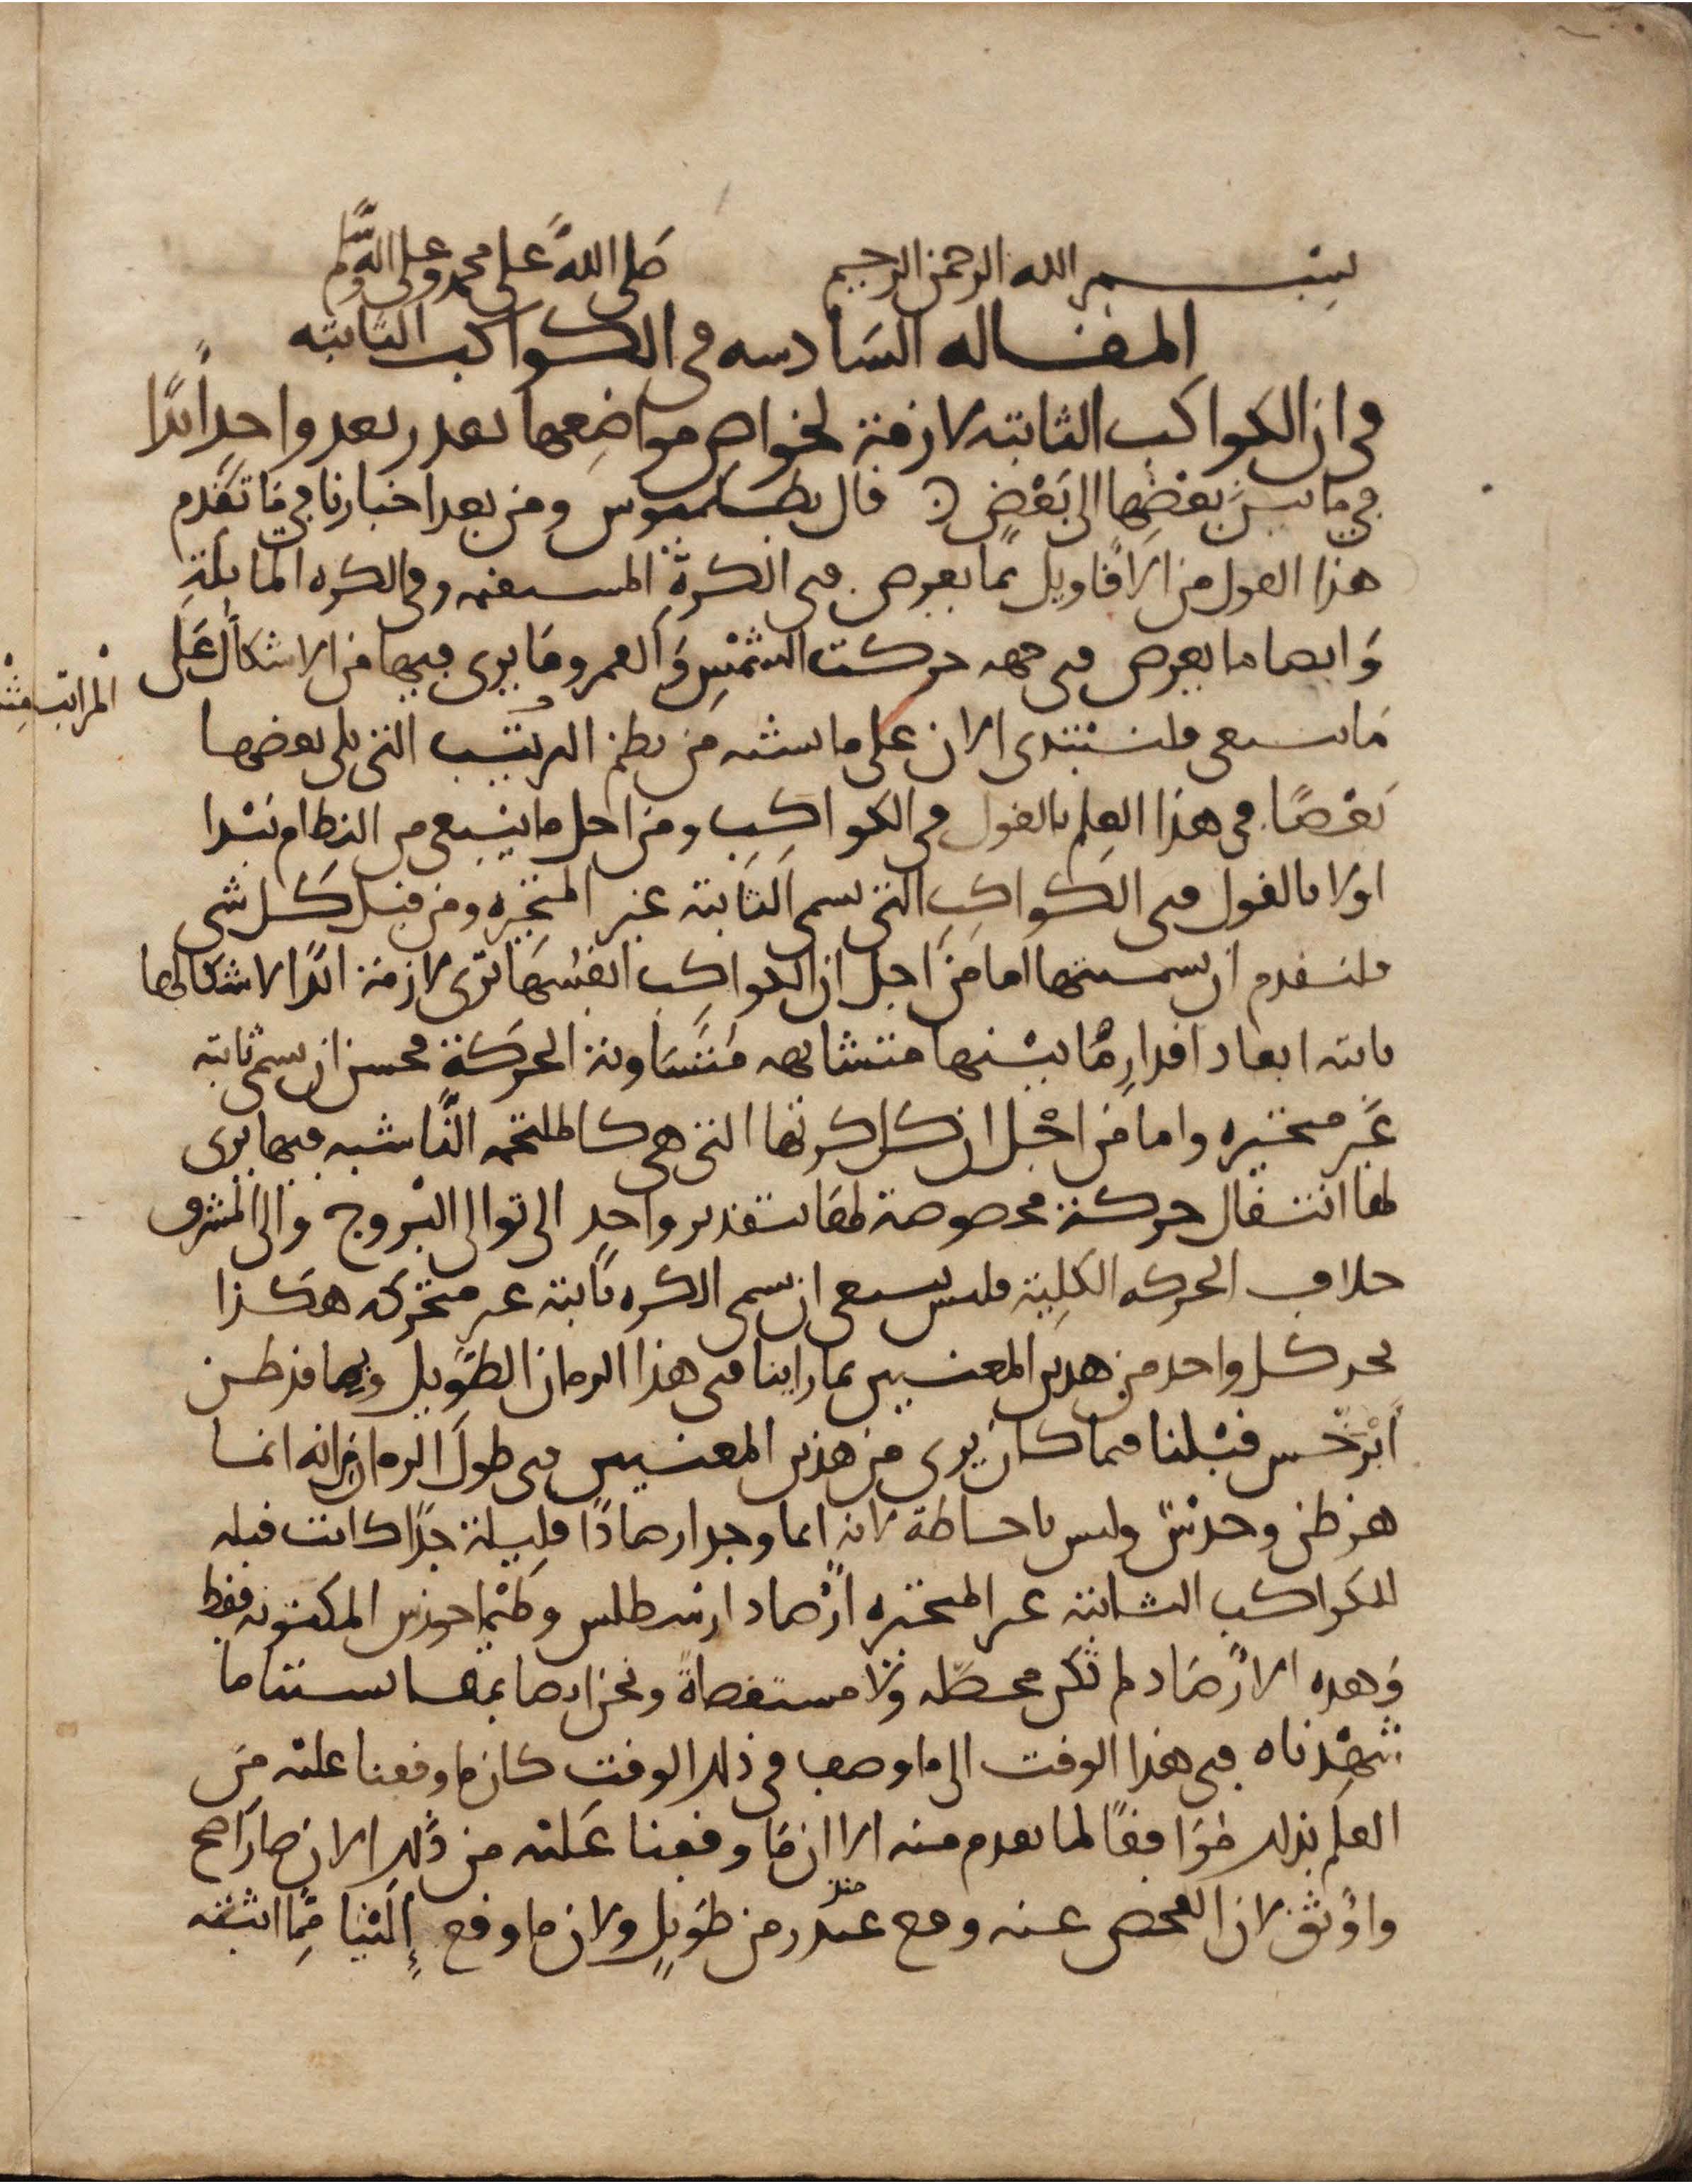 بسم الله الرحمن الرحيم صلى الله على محمد وعلى اله وسلم
المقاله السادسه في الكواكب الثابته
في ان الكواكب الثابته لازمة لخواص مواضعها بعدر بعد واحد ابدا
في ما بين بعضها الى بعض قال بطلميوس ومن بعد اخبارنا في ما تقدم
هذا القول من الاقاويل بما يعرض في الكرة المستقيمه وفي الكره المايلة
وايضا ما يعرض في جهه حركت الشمس والقمر وما يرى فيها من الاشكال على
المراتب
ما ينبغي فلنبتدى الان على ما يثبته من نظم الترتيب التي يلي بعضها
بعضا في هذا العلم بالقول في الكواكب ومن اجل ما ينبغي من النظام نبدا
اولا بالقول في الكواكب التي تسمى الثابتة غير المتحيره ومن قبل كل شي
فلنقدم ان تسميتها اما من اجل ان الكواكب انفسها ترى لازمة ابدا لاشكالها
ثابته ابعاد اقدار ما بينها متشابهه متساوية الحركة فحسن ان تسمى ثابته
غير متحيره واما من اجل ان كل كرتها التي هي كالملتحمه الناشبه فيها يرى
لها انتقال حركة مخصوصة لها بتقدير واحد الى توالي البروج والى المشرق
خلاف الحركه الكلية فليس ينبغي ان تسمى الكره ثابتة غير متحركه هكذا
نجد كل واحد من هذين المعنيين بما راينا في هذا الزمان الطويل وبما قد ظن
ابرخس قبلنا مما كان يرى من هذين المعنيين في طول الزمان فانه انما
هو ظن وحدس وليس باحاطة لانه انما وجد ارصادا قليلة جدا كانت قبله
للكواكب الثابتة غير المتحيره ارصاد ارسطلس وطيماخوذس المكتوبه فقط
وهذه الارصاد لم تكن محصله ولا مستقصاة ونحن ايضا بمقايستنا ما
شهدناه في هذا الوقت الى ما وصف في ذلك الوقت كان ما وقفنا عليه من
العلم بذلك موافقا لما تقدم منه الا ان ما وقفنا عليه من ذلك الان صار اصح
واوثق لان الفحص عنه وقع عند زمن طويل ولان ما وقع الينا مما اثبته